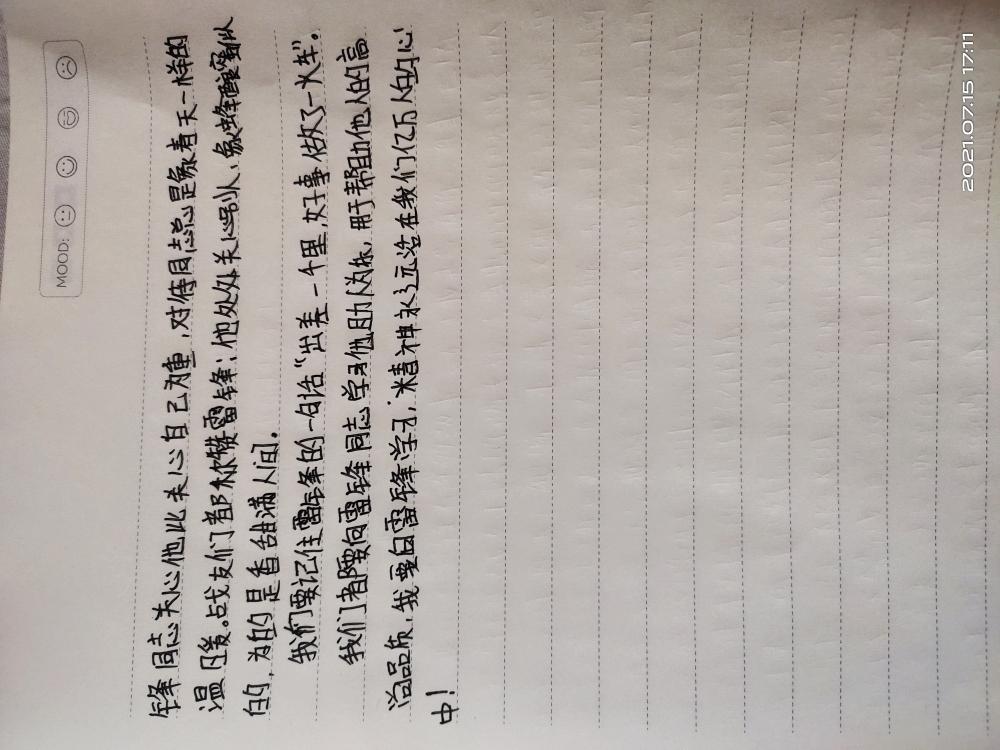 MOOD:
锋同志关心他比关心自己为重,对待同志总是象春天一样的
温暖。战友们都称赞雷锋:他处处关心别人,象蜂酿蜜似
的,为的是香甜满人间。
我们要记住雷锋的一句话“出差一千里,好事做了一火车”。
我们都要向雷锋同志学习他助人为乐,用于帮助他人的高
尚品质,我要向雷锋学习,精神永远活在我们亿万人的心
中!
2021.07.15 17:11